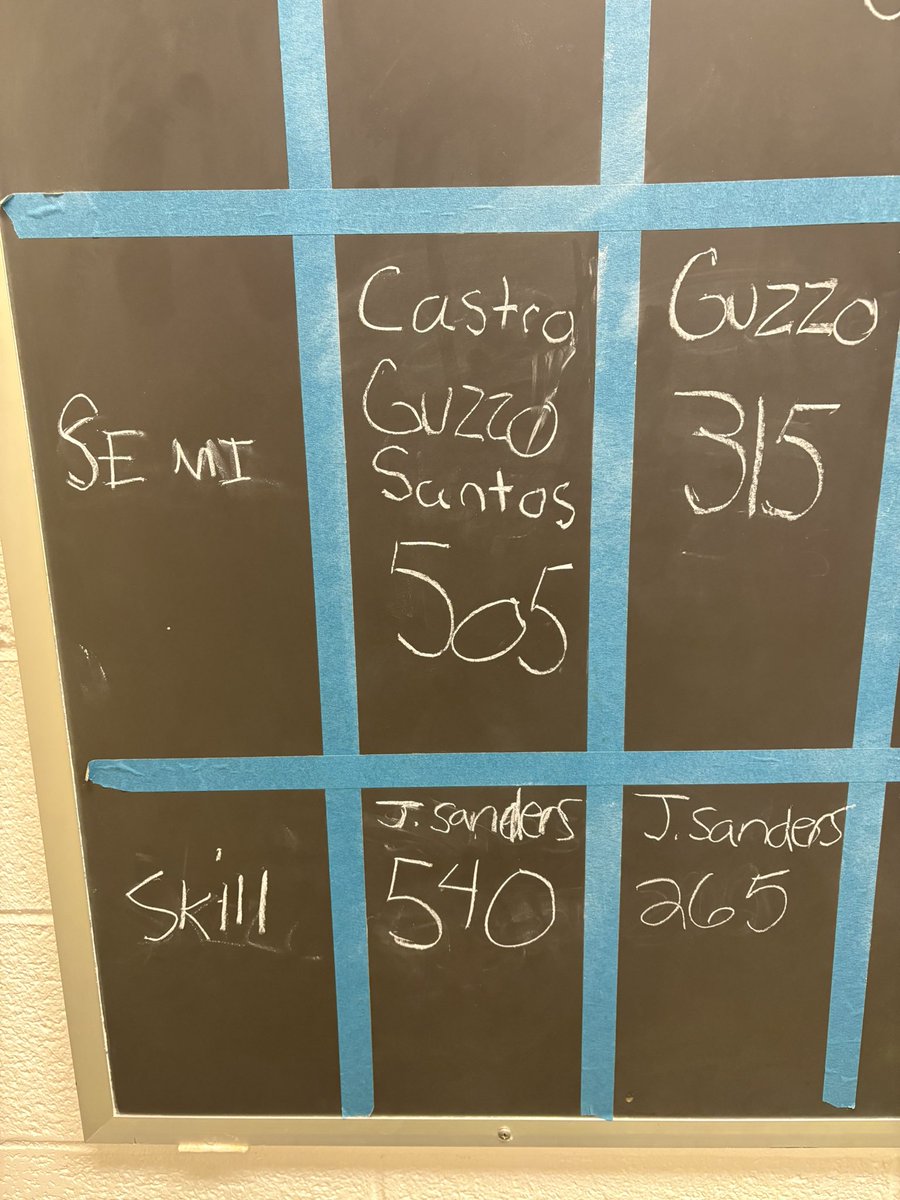 SEMI
Castro
Guzzo
Santos
505
Guzzo
315
Skill
J. Sanders
540
J. Sanders
265